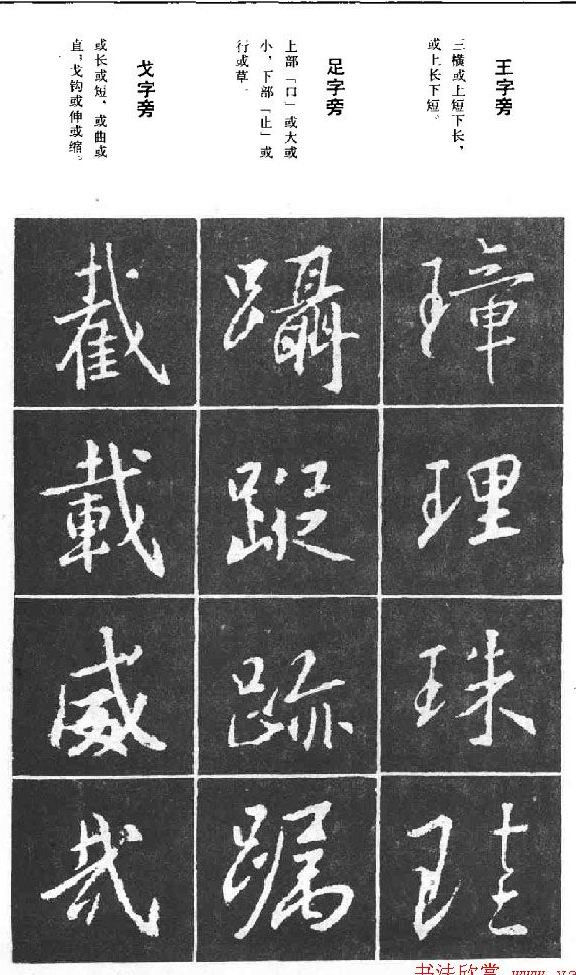 王字旁
三横或上短下长，
或上长下短。
璋
理
珠
珪
足字旁
上部「口」或大或
小，下部「止」或
行或草。
躡
跡
戈字旁
或长或短，或曲或
直，戈钩或伸或缩。
截
載
威
哉
书法欣赏